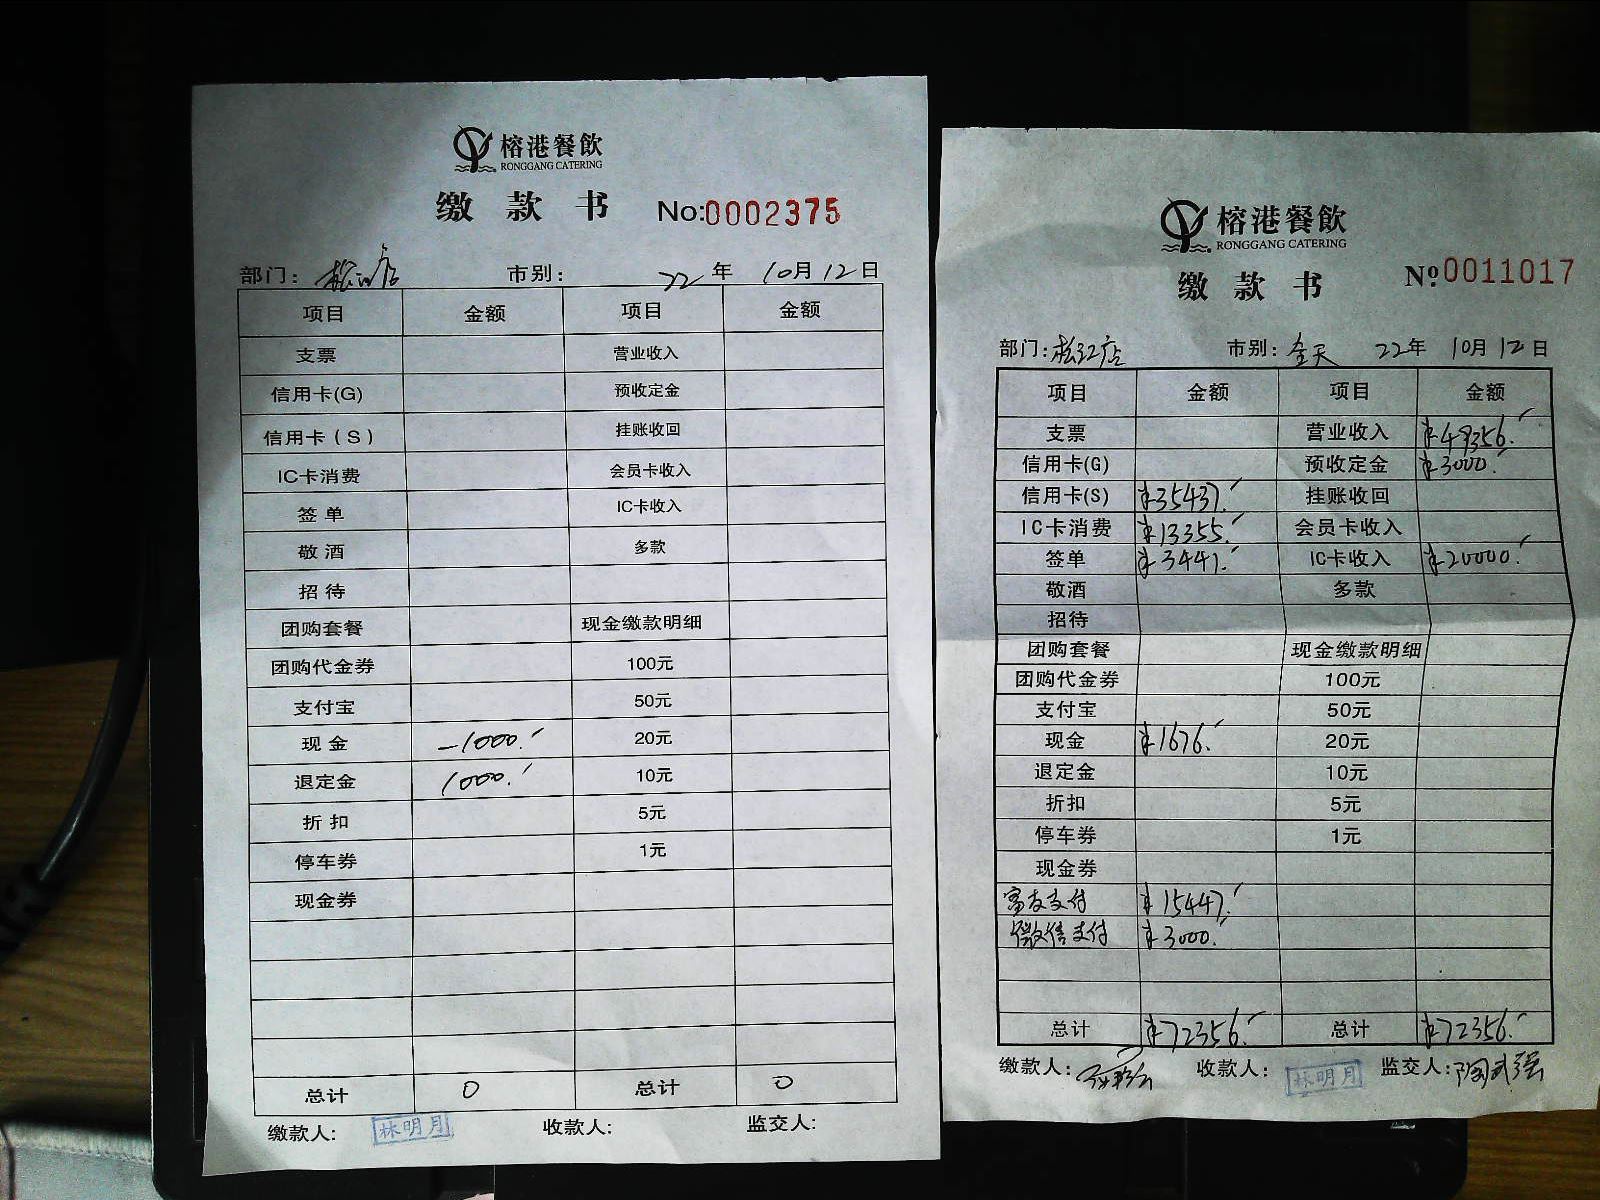 榕港餐飲
RONGGANG CATERING
缴款书 No:0002375
部门: 松江店 市别: 22年 10月12日
项目 金额 项目 金额
支票 营业收入
信用卡(G) 预收定金
信用卡(S) 挂账收回
IC卡消费 会员卡收入
签单 IC卡收入
敬酒 多款
招待
团购套餐 现金缴款明细
团购代金券 100元
支付宝 50元
现金 -1000. 20元
退定金 1000. 10元
折扣 5元
停车券 1元
现金券
总计 0 总计 0
缴款人: 林明月 收款人: 监交人:
榕港餐飲
RONGGANG CATERING
缴款书 №0011017
部门:松江店 市别:全天 22年 10月12日
项目 金额 项目 金额
支票 营业收入 ¥49356.
信用卡(G) 预收定金 ¥3000.
信用卡(S) ¥35437. 挂账收回
IC卡消费 ¥13355. 会员卡收入
签单 ¥3441. IC卡收入 ¥20000.
敬酒 多款
招待
团购套餐 现金缴款明细
团购代金券 100元
支付宝 50元
现金 ¥1676. 20元
退定金 10元
折扣 5元
停车券 1元
现金券
富友支付 ¥15447.
微信支付 ¥3000.
总计 ¥72356. 总计 ¥72356.
缴款人: 收款人: 林明月 监交人:陶武强